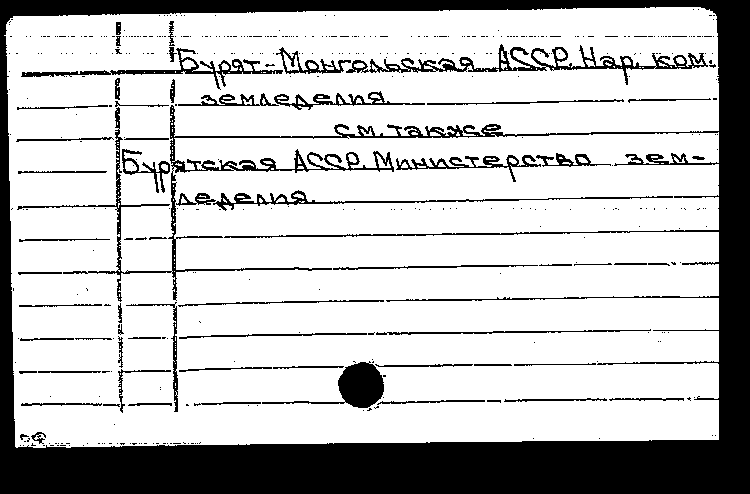 Бурят-Монгольская АССР. Нар. ком.
земледелия.
см. также
Бурятская АССР. Министерство зем-
леделия.